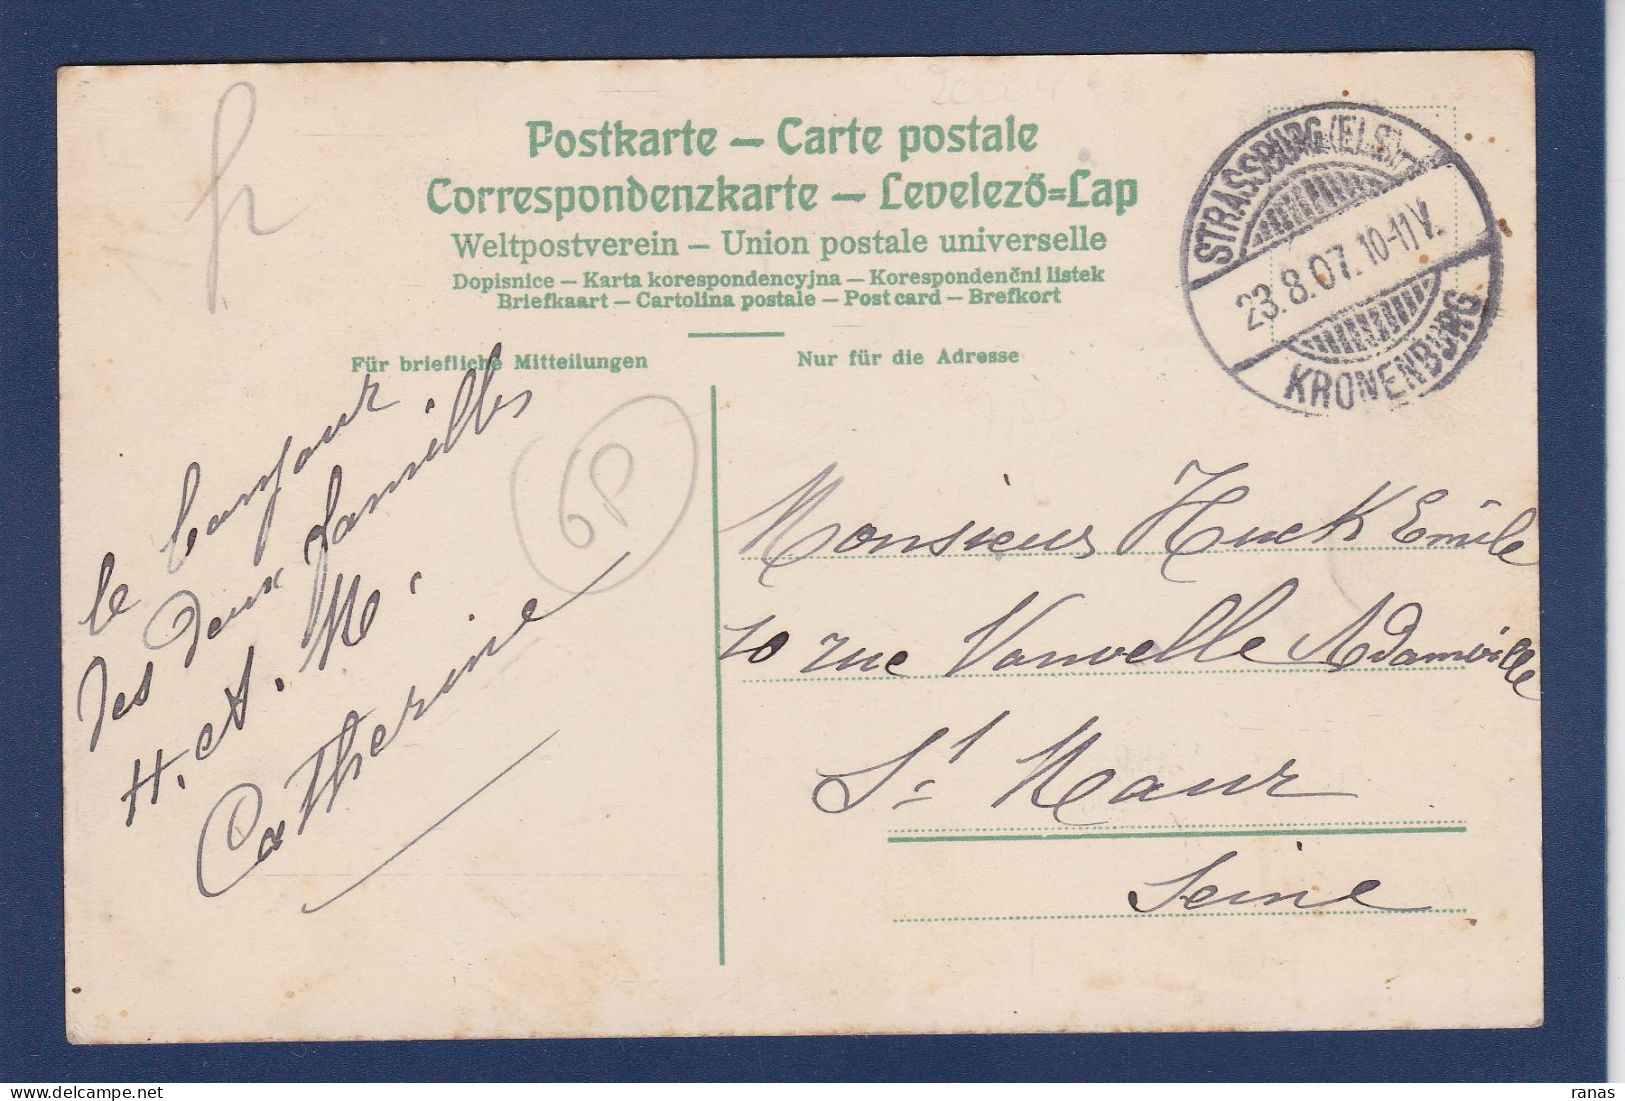 Postkarte – Carte postale
Correspondenzkarte – Levelező=Lap
Weltpostverein – Union postale universelle
Dopisnice – Karta korespondencyjna – Korespondenční listek
Briefkaart – Cartolina postale – Post card – Brefkort
Für briefliche Mitteilungen
Nur für die Adresse
STRASSBURG (ELS).
23.8.07. 10-11V.
KRONENBURG
le bonjour
des deux familles
H. et M.
Catherine
6P
Monsieur Huck Emile
10 rue Vanvelle Adamville
St Maur
Seine
ranas